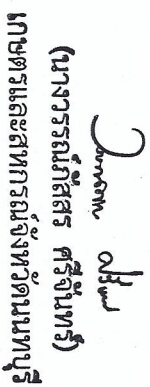 (นางวรรณ์ภัสสร ศรีจันทร์)
เกษตรและสหกรณ์จังหวัดนนทบุรี